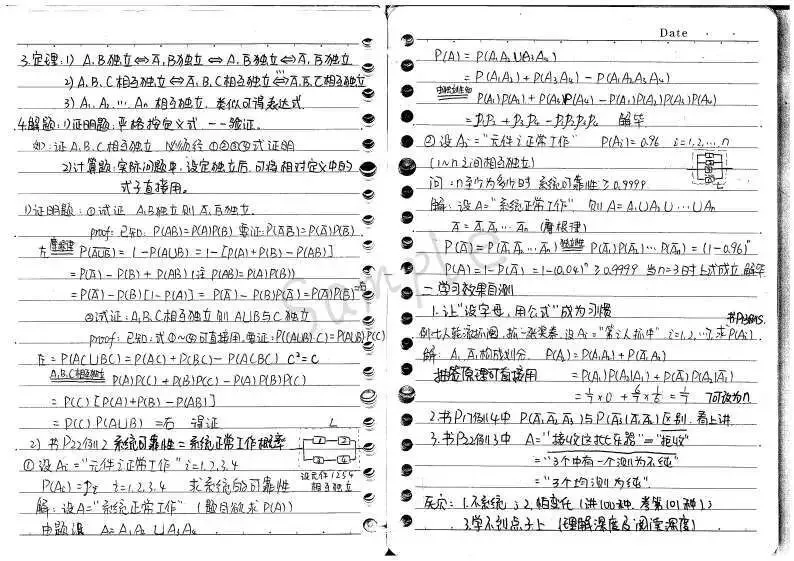 3.定理:1) A.B独立⇔A̅,B独立 ⇔ A,B̅独立⇔A̅,B̅独立
2) A.B.C相互独立⇔A̅,B,C相互独立⇔A̅,B̅,C̅相互独立
3) A₁.A₂.… Aₙ 相互独立.类似可得表达式
4.解题:1)证明题.严格按定义式一一验证.
如:证A.B.C相互独立 必须证①②③④式证明
2)计算题:实际问题中,设定独立后,可将相对定义中的
式子直接用。
1)证明题:①试证 A,B独立则A̅,B̅独立.
proof:已知:P(AB)=P(A)P(B) 要证:P(A̅B̅)=P(A̅)P(B̅)
左 摩根律 P(A̅U̅B̅) = 1-P(AUB) = 1-[P(A)+P(B)-P(AB)]
=P(A̅)-P(B)+P(AB) (注 P(AB)=P(A)P(B))
=P(A̅)-P(B)[1-P(A)] = P(A̅)-P(B)P(A̅)=P(A̅)P(B̅)=右
②试证:A,B,C相互独立则AUB与C独立
proof:已知:式①~④可直接用.要证:P((AUB)C)=P(AUB)P(C)
左=P(ACUBC)=P(AC)+P(BC)-P(ACBC) C²=C
A,B,C相互独立 P(A)P(C)+P(B)P(C)-P(A)P(B)P(C)
=P(C)[P(A)+P(B)-P(AB)]
=P(C)P(AUB) =右 得证
2) 书P22例2 系统可靠性=系统正常工作概率
L
1 2
3 4
①设Aᵢ="元件i正常工作" i=1.2.3.4
设元件1234
相互独立
P(Aᵢ)=pᵢ i=1.2.3.4 求系统的可靠性
解:设A="系统正常工作" (题目欲求P(A))
由题设 A=A₁A₂UA₃A₄
Date
P(A)=P(A₁A₂UA₃A₄)
=P(A₁A₂)+P(A₃A₄)-P(A₁A₂A₃A₄)
由独立性知 P(A₁)P(A₂)+P(A₃)P(A₄)-P(A₁)P(A₂)P(A₃)P(A₄)
=P₁P₂+P₃P₄-P₁P₂P₃P₄ 解毕
②设Aᵢ="元件i正常工作" P(Aᵢ)=0.96 i=1,2,…n
(1~n之间相互独立)
L
问:n至少为多少时系统可靠性≥0.9999
解:设A="系统正常工作" 则A=A₁UA₂U…UAn
A̅=A̅₁A̅₂…A̅n (摩根律)
P(A̅)=P(A̅₁A̅₂…A̅n) 独立性 P(A̅₁)P(A̅₂)…P(A̅n)=(1-0.96)ⁿ
P(A)=1-P(A̅)=1-(0.04)ⁿ≥0.9999 当n=3时上式成立 解毕
二.学习效果自测
1.让"设字母,用公式"成为习惯
例:七人轮流抓阄,抓一张奖券,设Aᵢ="第i人抓中" i=1,2,…7,求P(A₂)
解:A₁ A̅₁构成划分 P(A₂)=P(A₁A₂)+P(A̅₁A₂)
抽签原理可直接用 =P(A₁)P(A₂|A₁)+P(A̅₁)P(A₂|A̅₁)
=1/7×0+6/7×1/6=1/7 7可改为n
2.书P17例4中P(A̅₁A̅₂A̅₃)与P(A̅₃|A̅₁A̅₂)区别.看上讲
3.书P22例3中 A="接收这批乐器"="拒收"
="3个中有一个测为不纯"
="3个均测为纯"
灰穴:1.不系统;2.怕变化(讲100种.考第101种);
3.学不到点子上(理解深度及阅读深度)
Sample